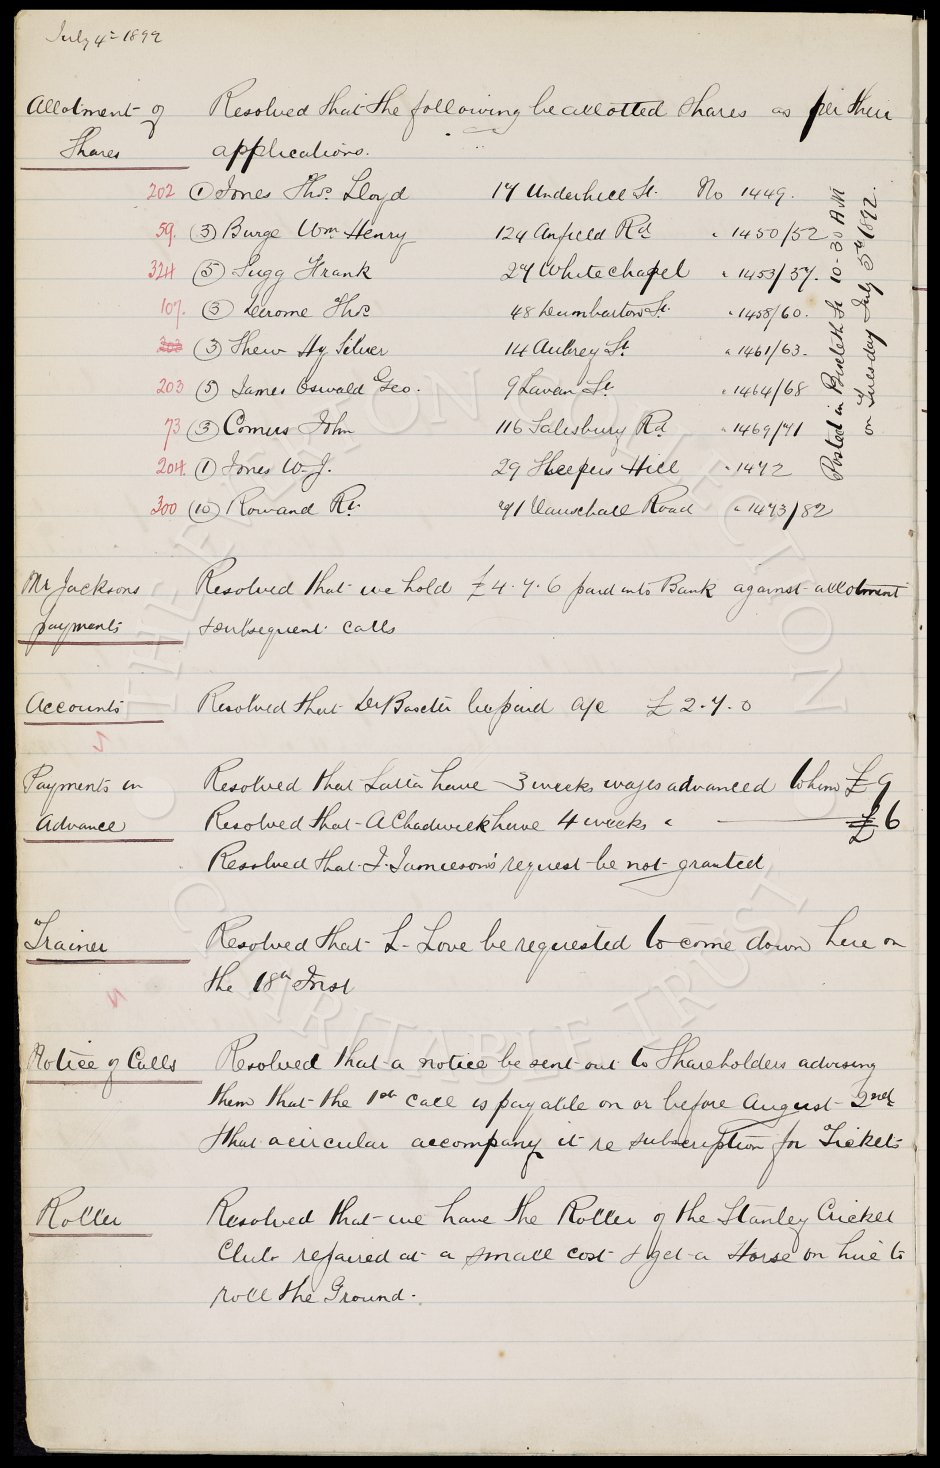 July 4th 1892
Allotment of Resolved that the following be allotted Shares as per their
Shares applications.
202 (1) Jones Thos. Lloyd 17 Underhill St. No 1449.
59. (3) Burge Wm Henry 124 Anfield Rd " 1450/52
324 (5) Sugg Frank 27 Whitechapel " 1453/57.
107. (3) Jerome Thos 48 Dumbarton St. " 1458/60.
303 (3) Shew Hy Silver 14 Aubrey St. " 1461/63.
203 (5) James Oswald Geo. 9 Lavan St. " 1464/68
73 (3) Comus John 116 Salesbury Rd " 1469/71
204. (1) Jones W. J. 29 Skeepers Hill " 1472
300 (10) Rowand Rt. 91 Vauxhall Road " 1473/82
Posted in St 10-30 AM
on Tuesday July 5th 1892.
Mr Jacksons Resolved that we hold £4.7.6 paid into Bank against allotment
payments & subsequent calls
Accounts Resolved that Dr Baxter be paid a/c £2.7.0
Payments in Resolved that Latta have 3 weeks wages advanced to him £9
Advance Resolved that A Chadwick have 4 weeks " £6
Resolved that J. Jamieson's request be not granted
Trainer Resolved that L. Love be requested to come down here on
the 18th Inst
Notice of Calls Resolved that a notice be sent out to Shareholders advising
them that the 1st call is payable on or before August 2nd
& that a circular accompany it re subscription for Tickets
Roller Resolved that we have the Roller of the Stanley Cricket
Club repaired at a small cost & get a Horse on hire to
roll the Ground.
THE EVERTON COLLECTION
CHARITABLE TRUST